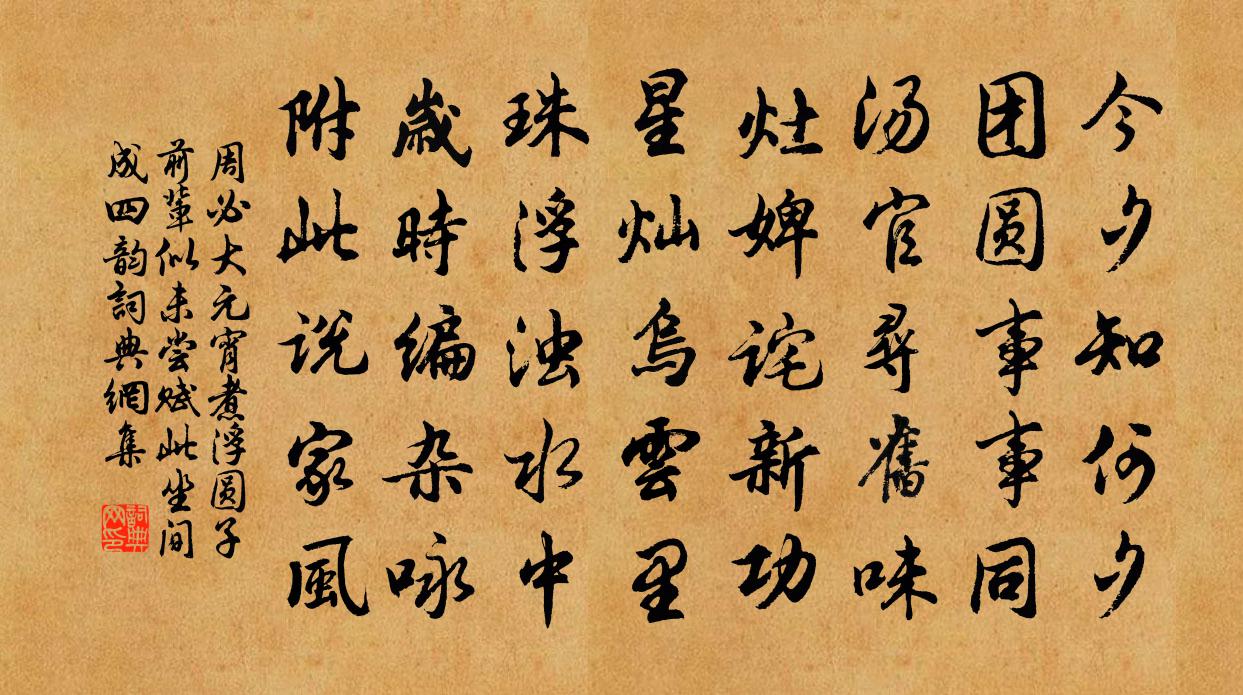 今夕知何夕
团圆事事同
汤官寻舊味
灶婢诧新功
星灿烏雲里
珠浮浊水中
歲時编杂咏
附此说家風
周必大元宵煮浮圆子
前辈似未尝赋此坐间
成四韵詞典網集
詞典网印